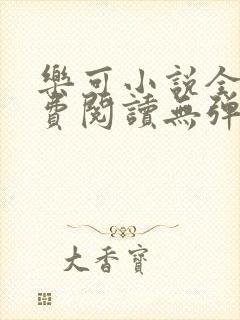 樂可小說全
費閱讀無彈
大香寶